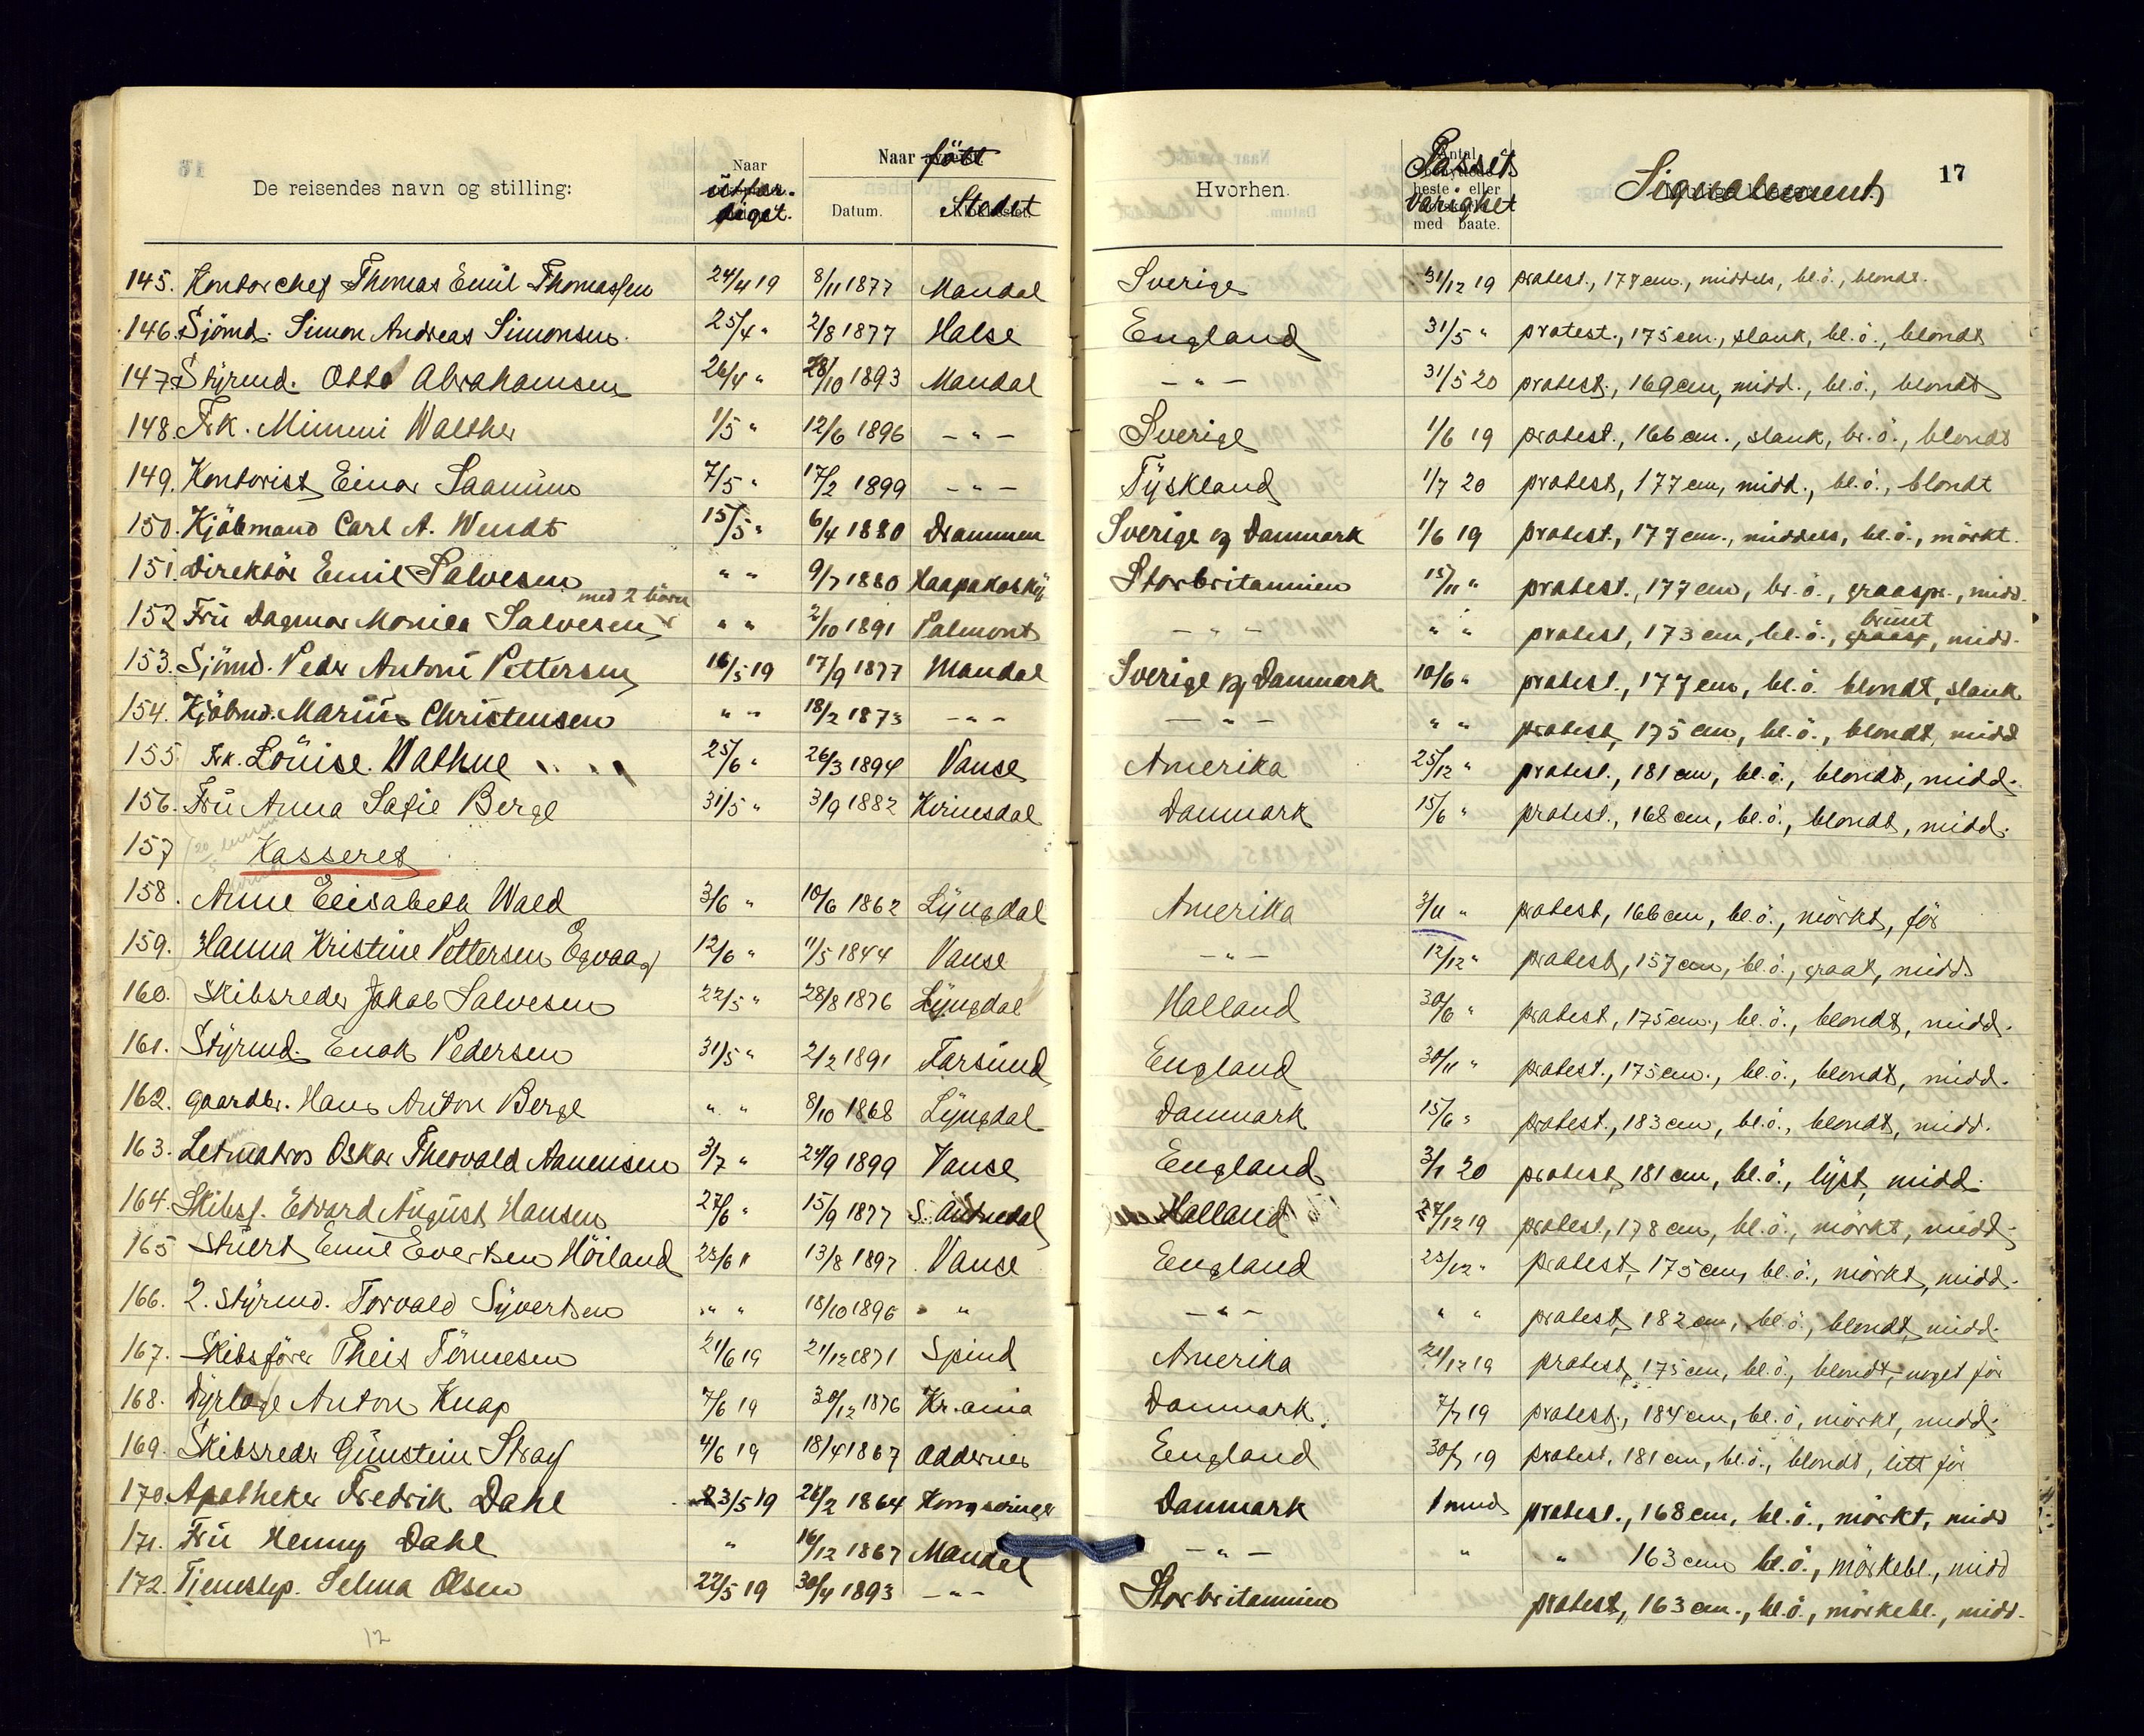 De reisendes navn og stilling: Naar utfærdiget. Naar født Datum. Stedet Hvorhen. Passets varighet Signalement 17
145. Kontorchef Thomas Emil Thomassen 24/4 19 8/11 1877 Mandal Sverige 31/12 19 protest., 177 cm., middels, bl.ö., blondt.
146. Sjömd. Simon Andreas Simonsen 25/4 " 2/8 1877 Halse England 31/5 " protest., 175 cm., slank, bl.ö., blondt
147. Styrmd. Otto Abrahamsen 26/4 " 28/10 1893 Mandal — " — 31/5 20 protest., 169 cm, midd., bl.ö., blondt
148. Frk. Mimmi Walther 1/5 " 12/6 1896 — " — Sverige 1/6 19 protest., 166 cm., slank, br.ö., blondt
149. Kontorist Einar Saanum 7/5 " 17/2 1899 — " — Tyskland 1/7 20 protest, 177 cm, midd., bl.ö., blondt
150. Kjöbmand Carl A. Wendt 15/5 " 6/4 1880 Drammen Sverige og Danmark 1/6 19 protest., 177 cm., middels, bl.ö., mörkt.
151. Direktör Emil Salvesen " " 9/7 1880 Haapakosky Storbritannien 15/11 " protest., 177 cm, br.ö., graaspr., midd.
med 2 börn
152 Fru Dagmar Monica Salvesen " " 2/10 1891 Palmont — " — " " protest, 173 cm, bl.ö., brunt, midd.
153. Sjömd. Peder Antoni Pettersen 16/5 19 17/9 1877 Mandal Sverige og Danmark 10/6 " protest., 177 cm, bl.ö. blondt, slank
154. Kjöbmd. Marius Christensen " " 18/2 1873 — " — — " — " " protest, 175 cm, bl.ö., blondt, midd
155 Frk. Louise Wathne 25/6 " 26/3 1894 Vanse Amerika 25/12 " protest., 181 cm, bl.ö., blondt, midd.
156. Fru Anna Sofie Berge 31/5 " 3/9 1882 Kvinesdal Danmark 15/6 " protest., 168 cm, bl.ö., blondt, midd.
157 Kasseret
158. Anne Elisabeth Wald 3/6 " 10/6 1862 Lyngdal Amerika 3/11 " protest, 166 cm, bl.ö., mörkt, för
159. Hanna Kristine Pettersen Egvaag 12/6 " 11/5 1844 Vanse — " — 12/12 " protest, 157 cm, bl.ö., graat, midd
160. Skibsreder Jakob Salvesen 22/5 " 28/8 1876 Lyngdal Holland 30/6 " protest, 175 cm., bl.ö., blondt, midd.
161. Styrmd. Enok Pedersen 31/5 " 2/2 1891 Farsund England 30/11 " protest., 175 cm., bl.ö., blondt, midd.
162. Gaardbr. Hans Anton Berge " " 8/10 1868 Lyngdal Danmark 15/6 " protest., 183 cm, bl.ö., blondt, midd.
163. Letmatros Oskar Theovald Aanensen 3/7 " 24/9 1899 Vanse England 3/1 20 protest, 181 cm, bl.ö., lyst, midd.
164. Skibsf. Edvard August Hansen 27/6 " 15/9 1877 S. Audnedal Holland 27/12 19 protest., 178 cm, bl.ö., mörkt, midd.
165 Stuert Emil Evertsen Höiland 23/6 " 13/8 1897 Vanse England 23/12 " protest, 175 cm, bl.ö., mörkt, midd.
166. 2. Styrmd. Torvald Syvertsen " " 18/10 1896 " " — " — " " protest, 182 cm, bl.ö., blondt, midd.
167. Skibsförer Theis Tönnesen 21/6 19 21/12 1871 Spind Amerika 21/12 19 protest, 175 cm, bl.ö., blondt, noget för
168. Dyrlæge Anton Knap 7/6 19 30/12 1876 Kr.ania Danmark 7/7 19 protest., 184 cm, bl.ö, mörkt, midd.
169. Skibsreder Gunstein Stray 4/6 19 18/4 1867 Oddernes England 30/7 19 protest, 181 cm, bl.ö., blondt, litt för
170. Apotheker Fredrik Dahl 23/5 19 26/2 1864 Kongsvinger Danmark 1 mnd protest., 168 cm, bl.ö., mörkt, midd
171. Fru Henny Dahl " 16/12 1867 Mandal — " — " " 163 cm bl.ö., mörkebl., midd
172. Tjenestep. Selma Olsen 22/5 19 30/4 1893 — " — Storbritannien protest, 163 cm., bl.ö., mörkebl., midd.
12